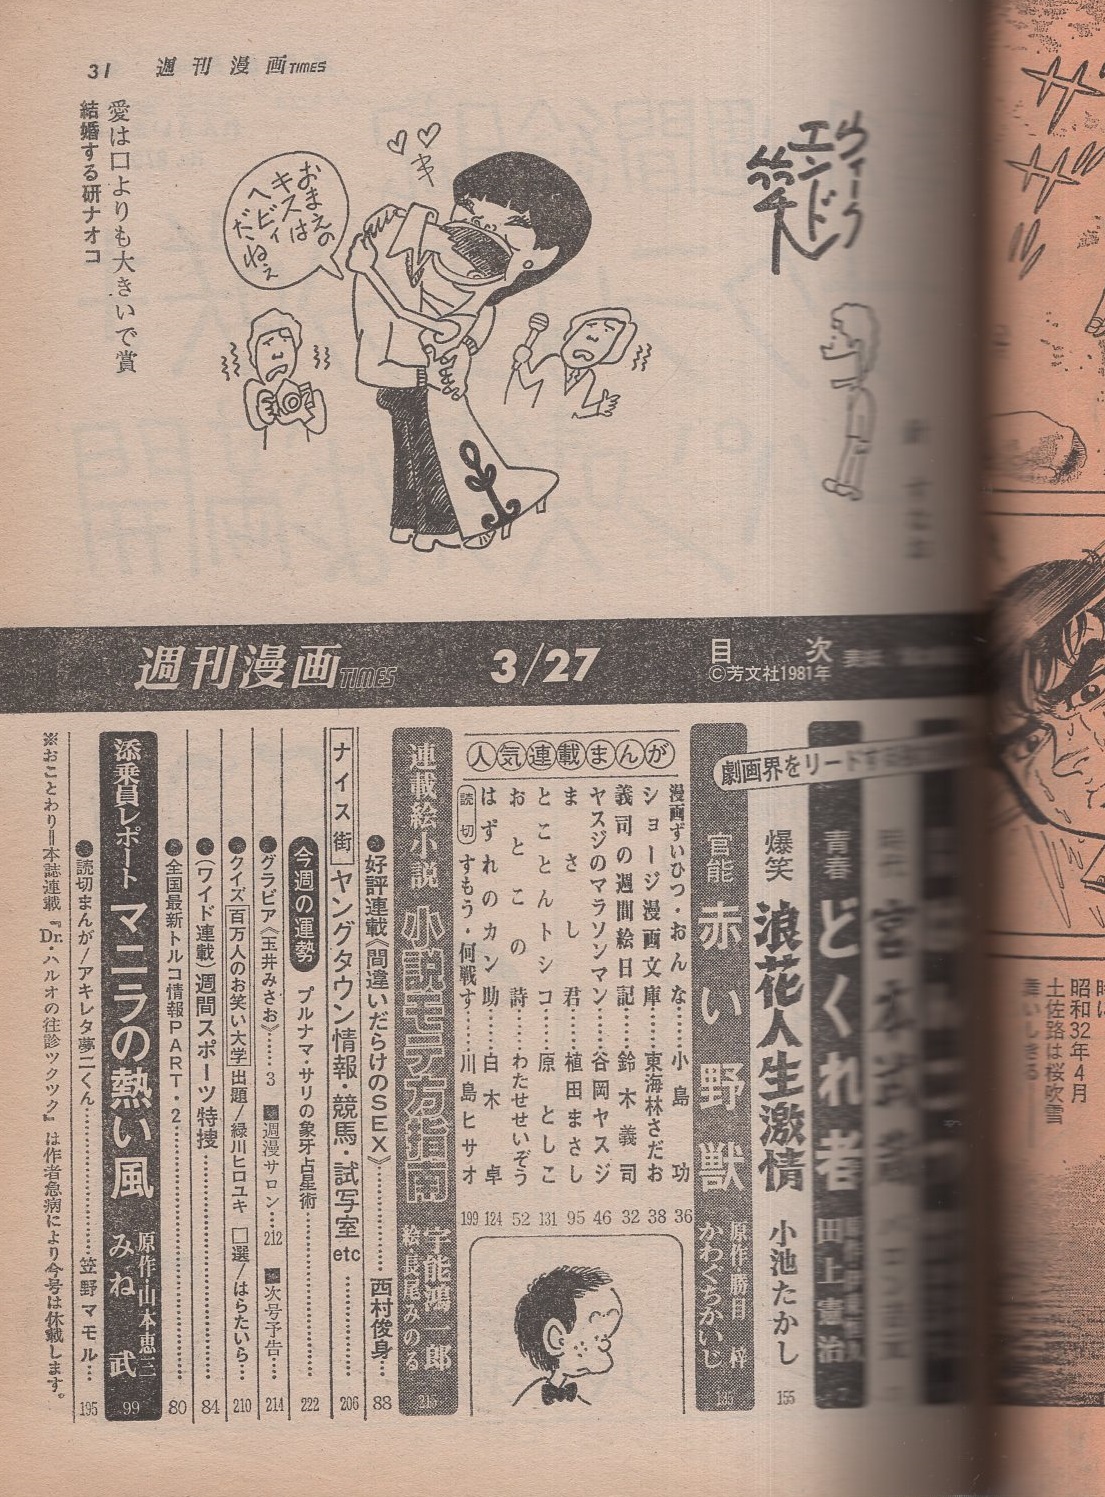 31 週刊漫画TIMES
ウィークエンド
愛は口よりも大きいで賞
結婚する研ナオコ
おまえの
キスは
ヘビィ
だねぇ
週刊漫画TIMES 3/27 目次
©芳文社1981年
劇画界をリードする
青春 どくれ者 田上憲治
爆笑 浪花人生激情 小池たかし 155
官能 赤い野獣 原作・勝目梓 かわぐちかいじ 185
人気連載まんが
漫画ずいひつ・おんな……小島功 36
ショージ漫画文庫……東海林さだお 38
義司の週間絵日記……鈴木義司 32
ヤスジのマラソンマン……谷岡ヤスジ 46
まさし君……植田まさし 95
とことんトシコ……原としこ 131
おとこの詩……わたせせいぞう 52
はずれのカン助……白木卓 124
読切 すもう・何戦す……川島ヒサオ 199
連載絵小説 小説モテ方指南 宇能鴻一郎 絵・長尾みのる 215
●好評連載《間違いだらけのSEX》……西村俊身… 88
ナイス街 ヤングタウン情報・競馬・試写室etc…… 206
今週の運勢 プルナマ・サリの象牙占星術…… 222
●グラビア《玉井みさお》……3 ■週漫サロン…212 ■次号予告… 214
●クイズ 百万人のお笑い大学 出題/緑川ヒロユキ □選/はらたいら… 210
●(ワイド連載)週間スポーツ特捜…… 84
●全国最新トルコ情報PART・2…… 80
添乗員レポート マニラの熱い風 原作・山本恵三 みね武 99
●読切まんが/アキレタ夢二くん……笠野マモル… 195
※おことわり=本誌連載『Dr.ハルオの往診ツクツク』は作者急病により今号は休載します。
昭和32年4月
土佐路は桜吹雪
舞いしきる――